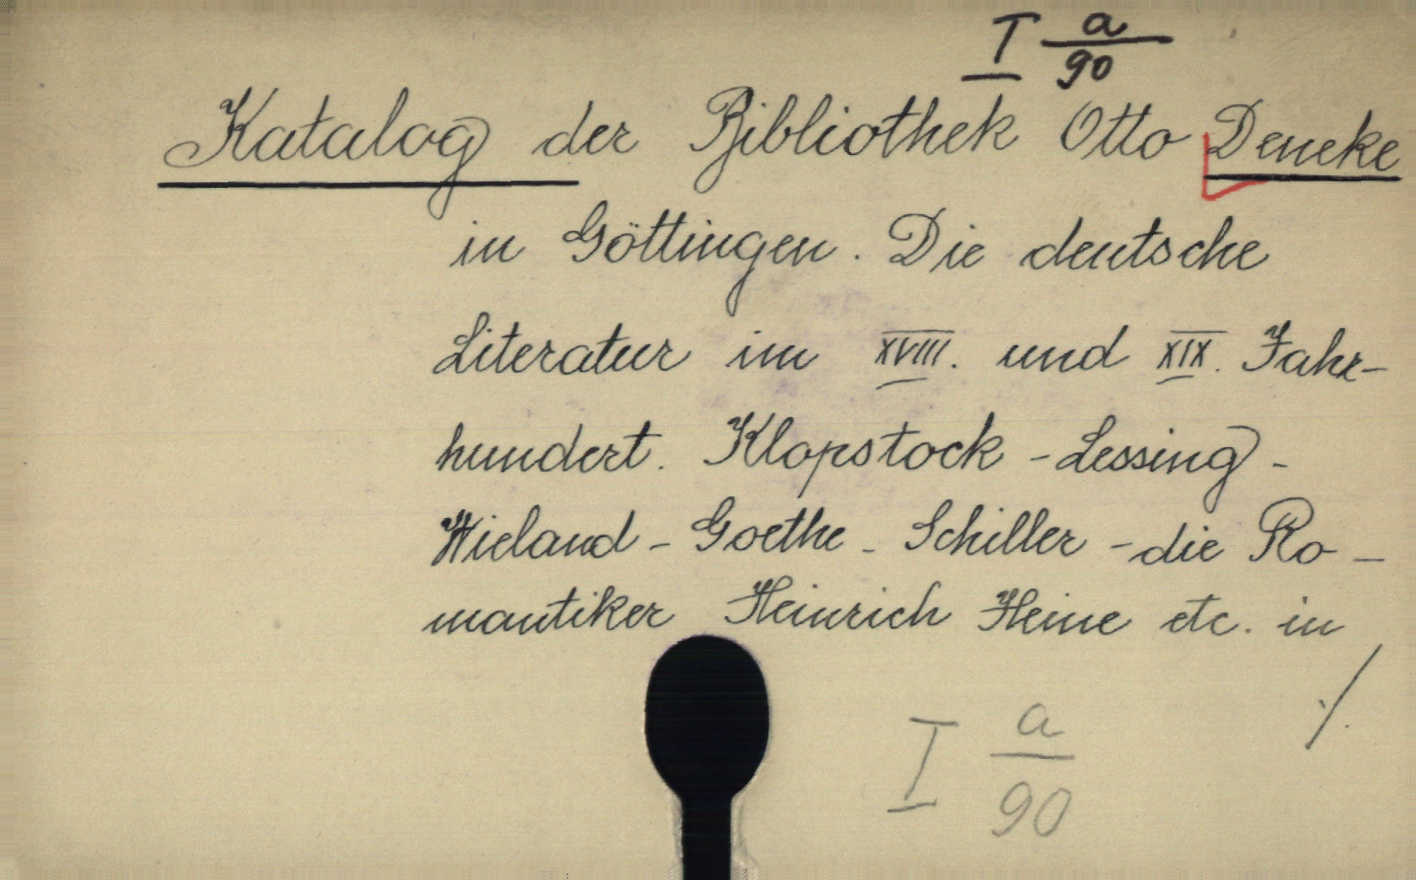 I a/90
Katalog der Bibliothek Otto Deneke
in Göttingen. Die deutsche
Literatur im XVIII. und XIX. Jahr-
hundert. Klopstock - Lessing -
Wieland - Goethe - Schiller - die Ro-
mantiker Heinrich Heine etc. in
./.
I a/90